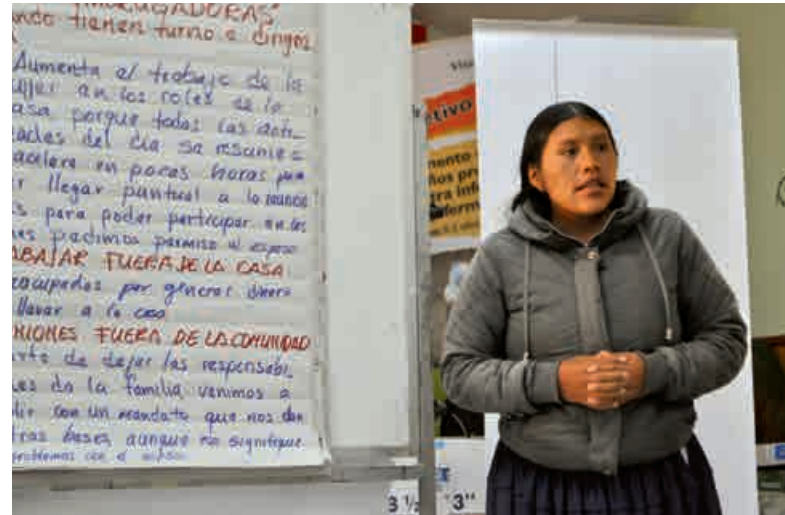 ando tienen turno o dirigen
Aumenta el trabajo de la
mujer en los roles de la
asa porque todas las acti_
dades del dia se resumen o
acelera en pocas horas para
r llegar puntual a la reunion
s para poder participar en las
nes pedimos permiso al esposo
ABAJAR FUERA DE LA CASA
eocupadas por generar dinero
llevar a la casa
NIONES FUERA DE LA COMUNIDAD
arte de dejar las responsabi_
es de la familia venimos a
plir con un mandato que nos dan
tras bases aunque nos signifique
problemas con el esposo
etivo
mento
ños pr
gra inf
form
3 1/2 "3"